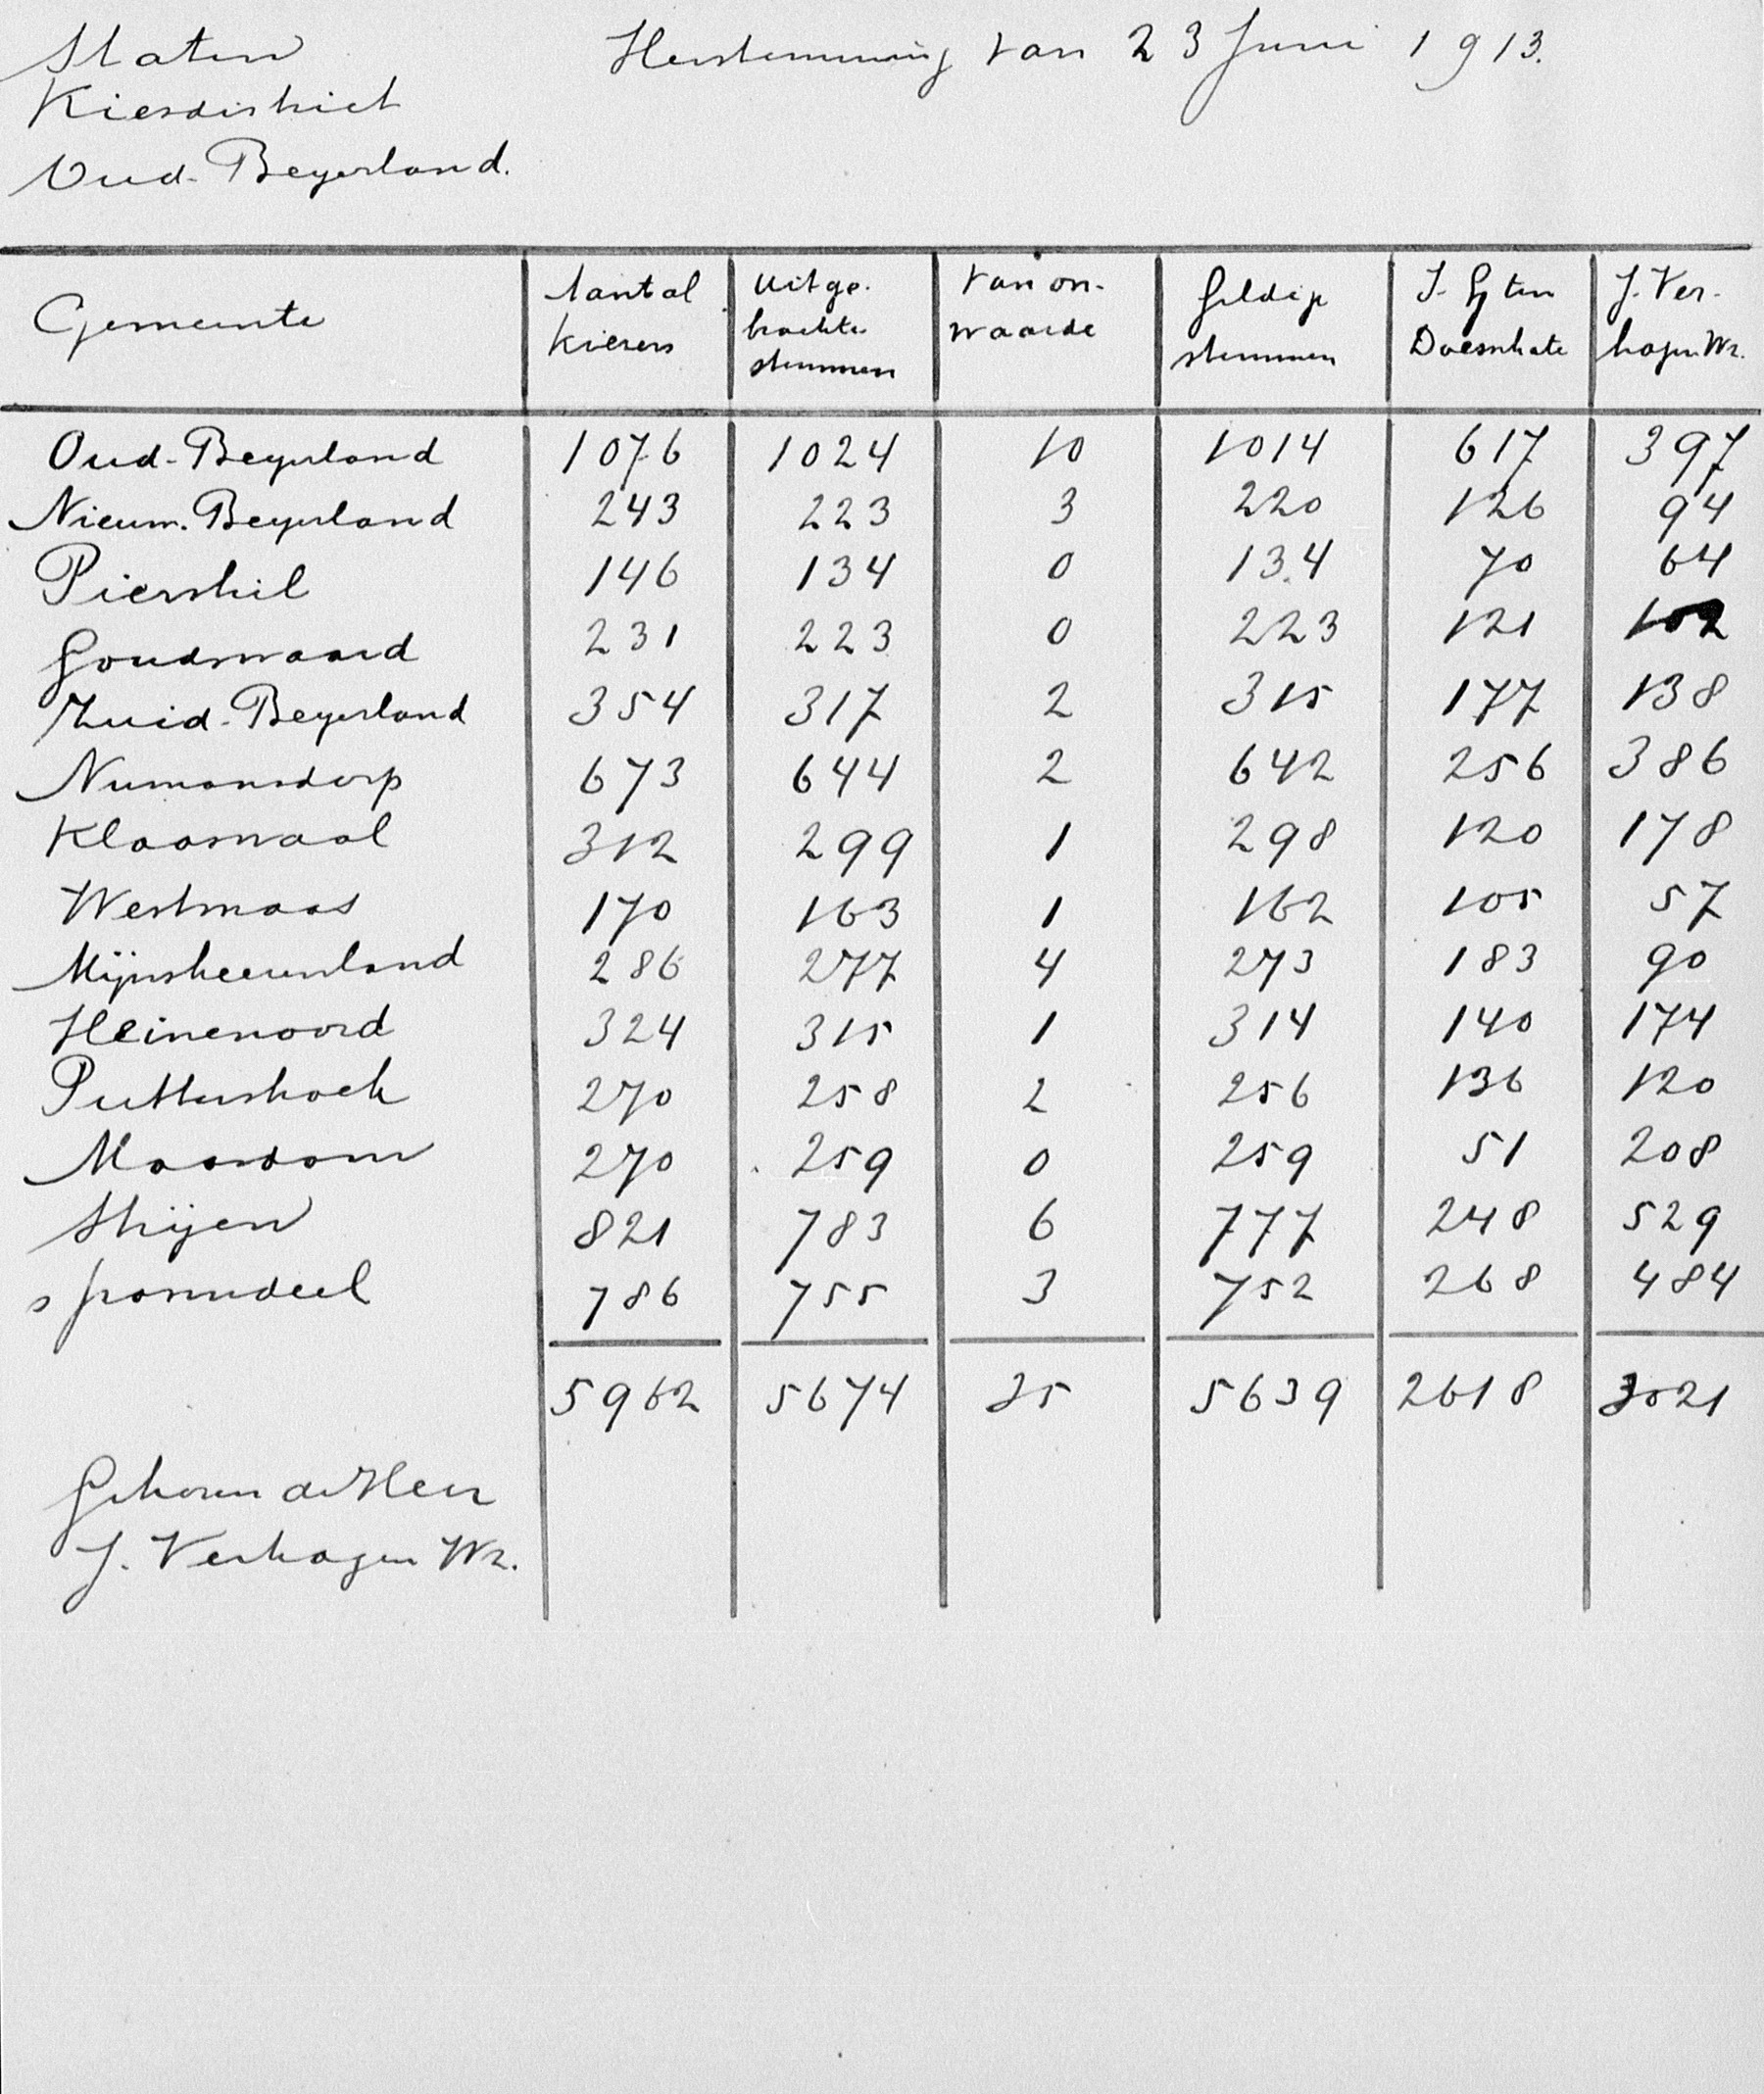 Staten Herstemming van 23 Juni 1913.
Kiesdistrict
Oud-Beyerland.
Gemeente Aantal kiezers Uitgebrachte stemmen van onwaarde Geldige stemmen J. Verhagen Wz.
Oud-Beyerland 1076 1024 10 1014 617 397
Nieuw-Beyerland 243 223 3 220 126 94
Piershil 146 134 0 134 70 64
Goudswaard 231 223 0 223 121 102
Zuid-Beyerland 354 317 2 315 177 138
Numansdorp 673 644 2 642 256 386
Klaaswaal 312 299 1 298 120 178
Westmaas 170 163 1 162 105 57
Mijnsheerenland 286 277 4 273 183 90
Heinenoord 324 315 1 314 140 174
Puttershoek 270 258 2 256 136 120
Maasdam 270 259 0 259 51 208
Strijen 821 783 6 777 248 529
s Gravendeel 786 755 3 752 268 484
5962 5674 35 5639 2618 3021
Gekozen de Heer
J. Verhagen Wz.